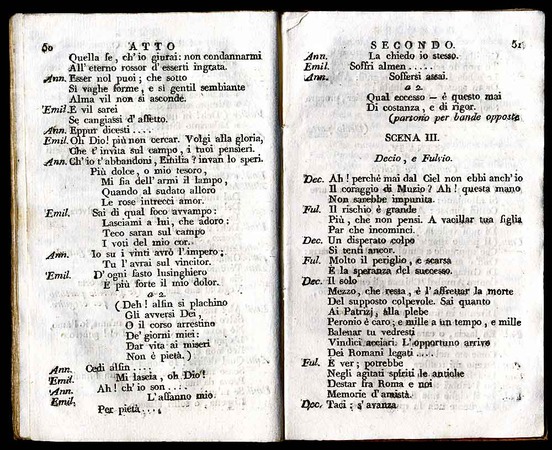 50 ATTO
Quella fe, ch'io giurai: non condannarmi
All' eterno rossor d'esserti ingrata.
Ann. Esser nol puoi; che sotto
Sì vaghe forme, e sì gentil sembiante
Alma vil non si asconde.
Emil. E vil sarei
Se cangiassi d'affetto.
Ann. Eppur dicesti ....
Emil. Oh Dio! più non cercar. Volgi alla gloria,
Che t'invita sul campo, i tuoi pensieri.
Ann. Ch'io t'abbandoni, Emilia? invan lo speri.
Più dolce, o mio tesoro,
Mi fia dell'armi il lampo,
Quando al sudato alloro
Le rose intrecci amor.
Emil. Sai di qual foco avvampo:
Lasciami a lui, che adoro:
Teco saran sul campo
I voti del mio cor.
Ann. Io su i vinti avrò l'impero;
Tu l'avrai sul vincitor.
Emil. D'ogni fasto lusinghiero
E' più forte il mio dolor.
a 2
(Deh! alfin si plachino
Gli avversi Dei,
O il corso arrestino
De' giorni miei:
Dar vita ai miseri
Non è pietà.)
Ann. Cedi alfin ....
Emil. Mi lascia, oh Dio!
Ann. Ah! ch'io son ....
Emil. L'affanno mio
Per pietà ....
SECONDO. 51
Ann. La chiedo io stesso.
Emil. Soffri almen .....
Ann. Soffersi assai.
a 2
Qual eccesso - è questo mai
Di costanza, e di rigor.
(partono per bande opposte
SCENA III.
Decio, e Fulvio.
Dec. Ah! perchè mai dal Ciel non ebbi anch'io
Il coraggio di Muzio? Ah! questa mano
Non sarebbe impunita.
Ful. Il rischio è grande
Più, che non pensi. A vacillar tua figlia
Par che incominci.
Dec. Un disperato colpo
Si tenti ancor.
Ful. Molto il periglio, e scarsa
E' la speranza del successo.
Dec. Il solo
Mezzo, che resta, è l'affrettar la morte
Del supposto colpevole. Sai quanto
Ai Patrizj, alla plebe
Peronio è caro; e mille a un tempo, e mille
Balenar tu vedresti
Vindici acciari. L'opportuno arrivo
Dei Romani legati ....
Ful. E' ver; potrebbe
Negli agitati spiriti le antiche
Destar fra Roma e noi
Memorie d'amistà.
Dec. Taci; s'avanza